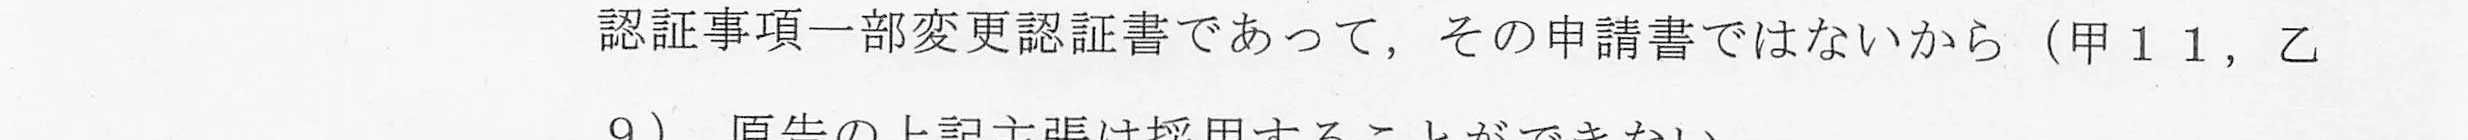 認証事項一部変更認証書であって，その申請書ではないから（甲１１，乙
９），原告の上記主張は採用することができない